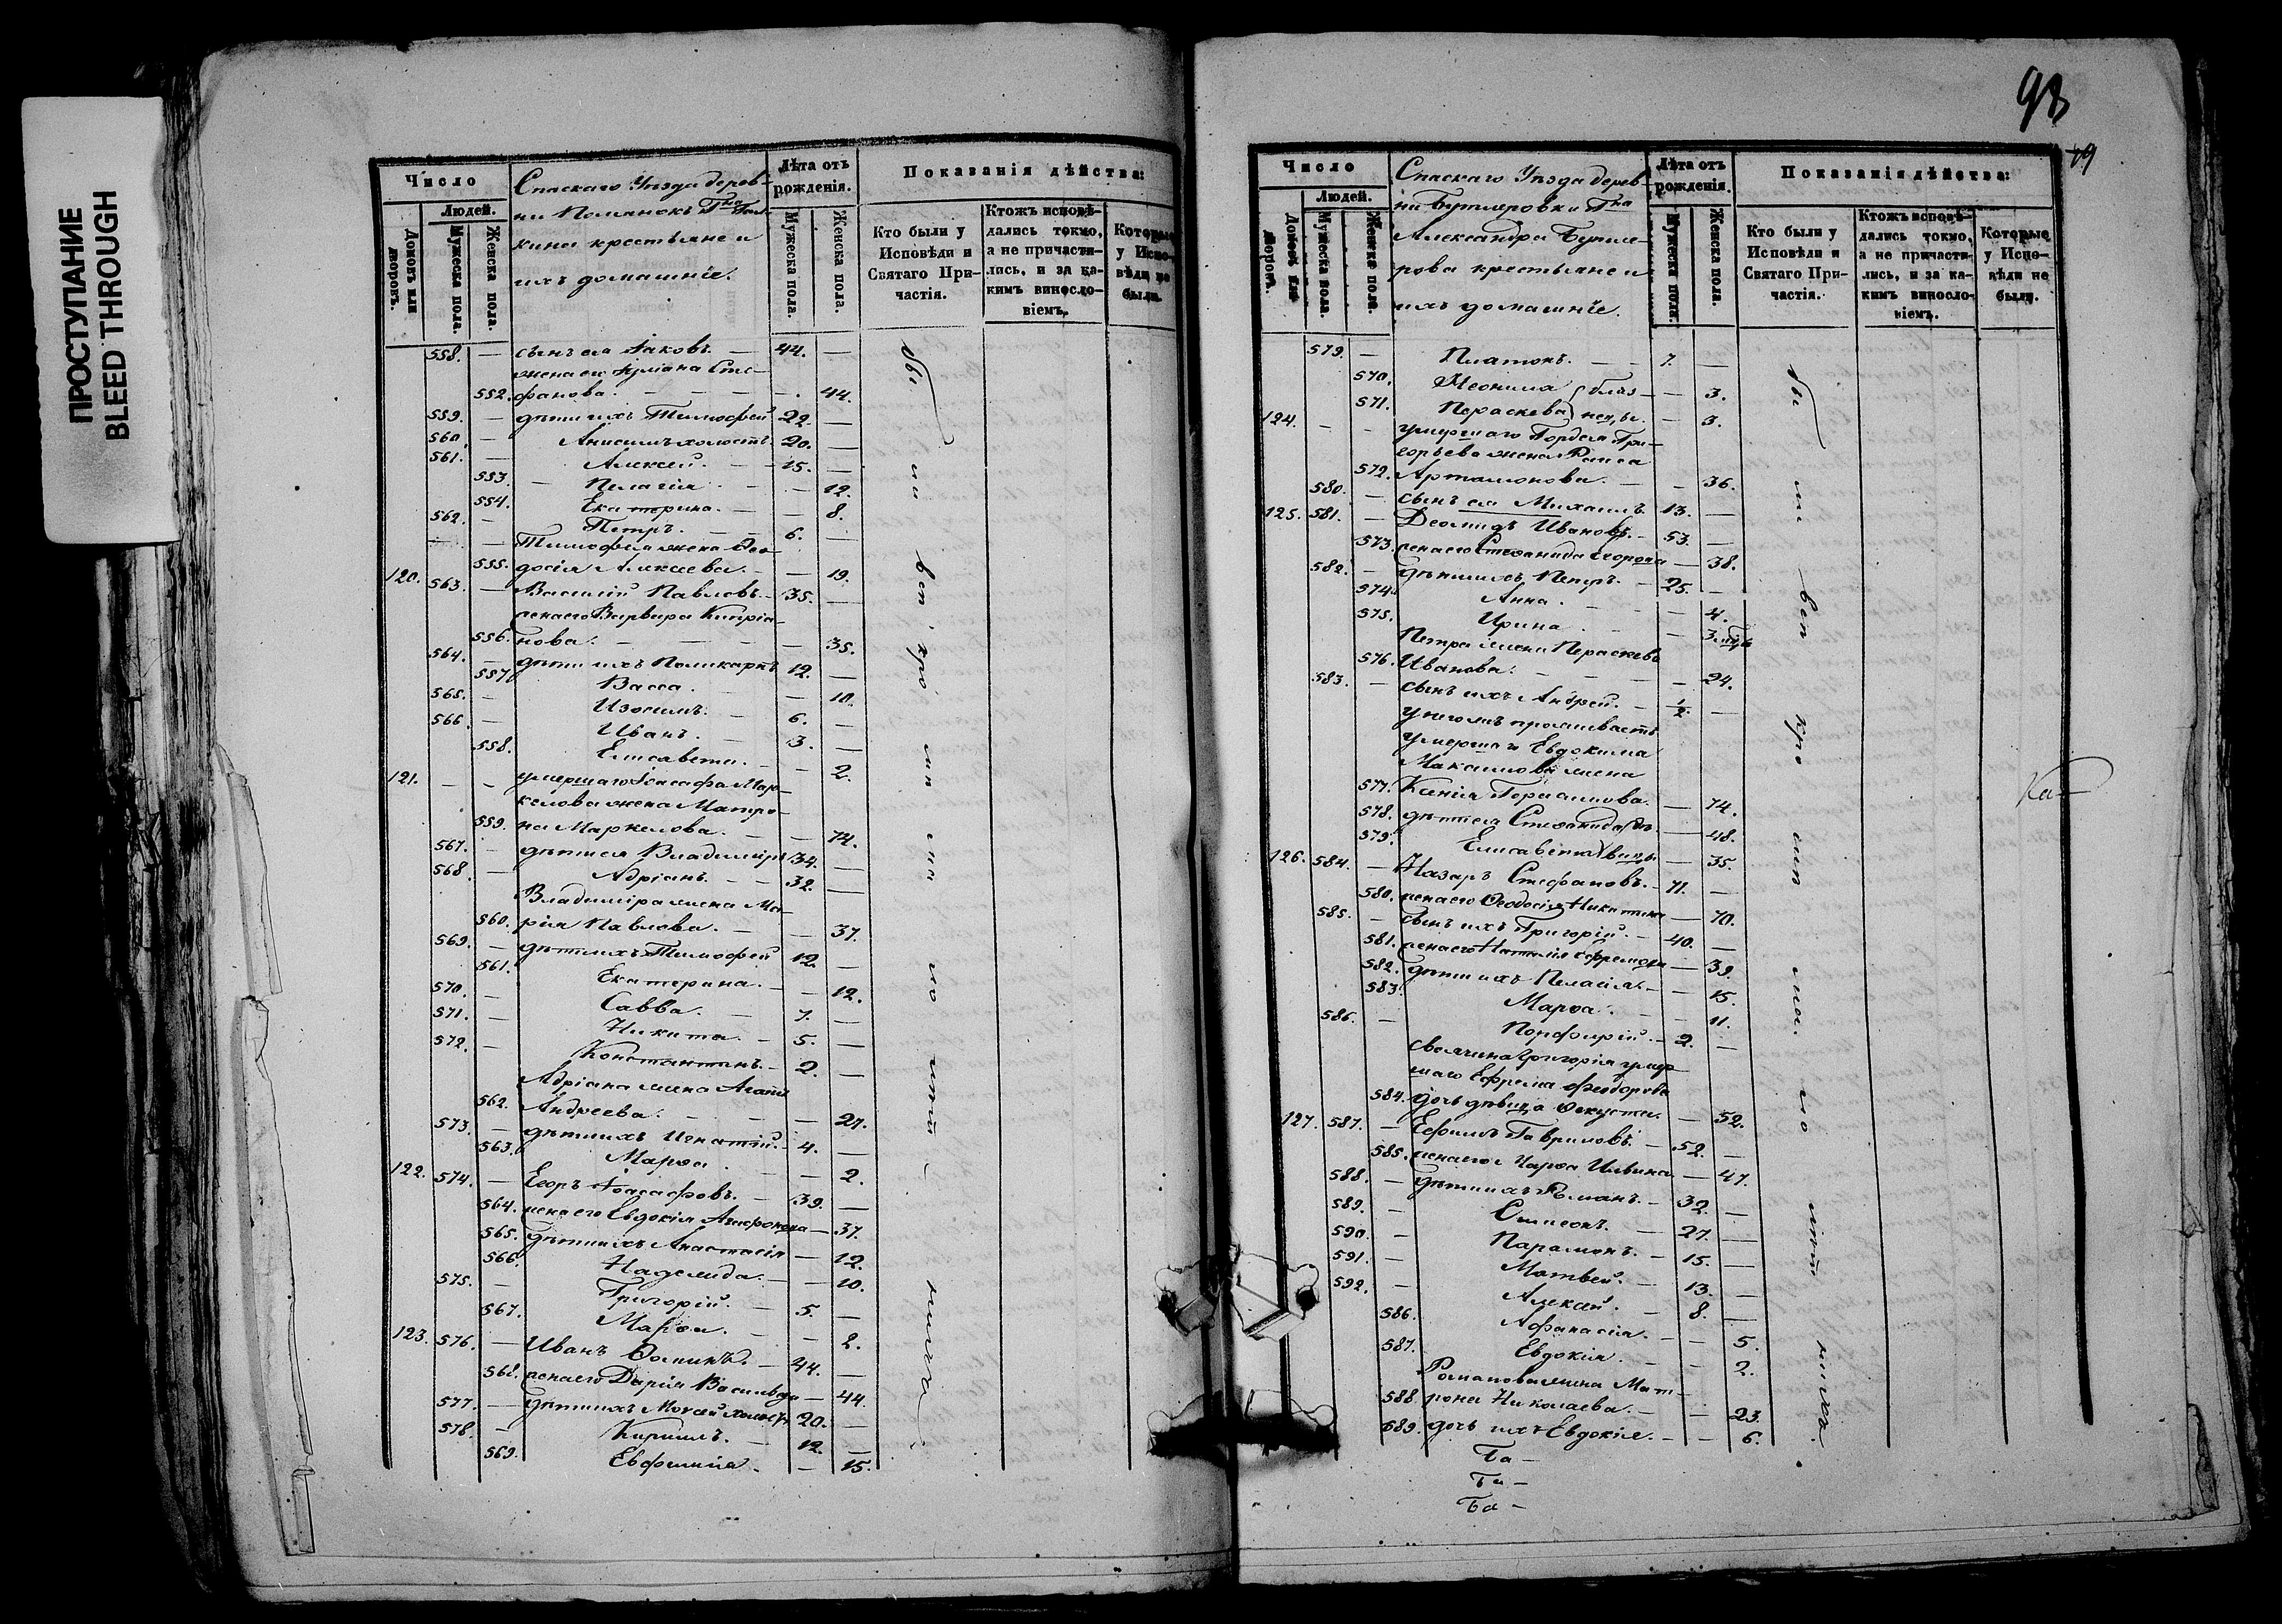 ПРОСТУПАНИЕ
BLEED THROUGH
Число
Людей.
Домовъ или дворовъ.
Мужеска пола.
Женска пола.
Спаскаго Уѣзда дерев-
ни Полянокъ Гна
кина крестьяне и
ихъ домашніе.
Лѣта отъ рожденія.
Мужеска пола.
Женска пола.
Показанія дѣйства:
Кто были у Исповѣди и Святаго Причастія.
Ктожъ исповѣ-
дались токмо,
а не причасти-
лись, и за ка-
кимъ винosло-
віемъ.
Которые у Испо-
вѣди не были.
558. — сынъ ея Іаковъ. — 44. —
жена его Іуліана Сте-
552. фанова. — — 44.
559. — дѣти ихъ Тимофей 22. —
560. — Анисимъ холостъ. 20. —
561. — Алексей. — 15. —
553. — Пелагія — 12.
554. Екатерина. — — 8.
562. — Петръ. — 6. —
Тимофея жена Ѳео-
555. досія Алексеева. — — 19.
120. 563. — Василій Павловъ. 35. —
жена его Варвара Кипріа-
556. нова. — — 35.
564. — дѣти ихъ Поликарпъ 12. —
557. Васса. — — 10.
565. — Изосимъ. — 6. —
566. — Иванъ. — 3. —
558. Елисавета. — — 2.
121. — — умершаго Іоасафа Мар-
келова жена Матро-
559. на Маркелова. — — 74.
567. — дѣти ея Владиміръ 34. —
568. — Адріанъ. — 32. —
Владиміра жена Ма-
560. рія Павлова. — — 37.
569. — дѣти ихъ Тимофей 12. —
561. Екатерина. — — 12.
570. — Савва. — 7. —
571. — Никита. — 5. —
572. — Константинъ. — 2. —
Адріана жена Агапія
562. Андреева. — — 27.
573. — дѣти ихъ Игнатій. 4. —
563. Марѳа. — — 2.
122. 574. — Егоръ Іоасафовъ. — 39. —
564. жена его Евдокія Агафонова — 37.
565. дѣти ихъ Анастасія — 12.
566. Надежда. — — 10.
575. — Григорій. — 5. —
567. Марѳа. — — 2.
123. 576. — Иванъ Ѳоминъ. — 44. —
568. жена его Дарія Васильева — 44.
577. — дѣти ихъ Моисей холостъ 20. —
578. — Кириллъ. — 12. —
569. Евфимія. — — 15.
98
Число
Людей.
Домовъ или дворовъ.
Мужеска пола.
Женска пола.
Спаскаго Уѣзда дерев-
ни Бутлеровки Гна
Александра Бутле-
рова крестьяне и
ихъ домашніе.
Лѣта отъ рожденія.
Мужеска пола.
Женска пола.
Показанія дѣйства:
Кто были у Исповѣди и Святаго Причастія.
Ктожъ исповѣ-
дались токмо,
а не причасти-
лись, и за ка-
кимъ винosло-
віемъ.
Которые у Испо-
вѣди не были.
579. — Платонъ. — 7. —
570. Неонила — 3.
571. Параскева — 3.
124. — — умершаго Гордея Гри-
горьева жена Раиса
572. Артамонова. — — 36.
580. — сынъ ея Михаилъ 13. —
125. 581. — Деомидъ Ивановъ. — 53. —
573. жена его Стефанида Егорова — 38.
582. — дѣти ихъ Петръ. — 25. —
574. Анна. — — 4.
575. Ирина. — 3.
Петра жена Параскева
576. Иванова. — — 24.
583. — сынъ ихъ Андрей. — ½. —
у него жъ проживаетъ
умершаго Евдокима
Максимова жена
577. Ксенія Герасимова. — 74.
578. дѣти ея Стефанида дѣ- — 48.
579. Елисавета вицы — 35.
126. 584. — Назаръ Стефановъ. — 71. —
580. жена его Ѳеодосія Никитина — 70.
585. — сынъ ихъ Григорій. — 40. —
581. жена его Наталія Ефремова — 39.
582. дѣти ихъ Пелагія. — — 15.
583. Марѳа. — — 11.
586. — Порфирій. — 2. —
своячина Григорія умер-
шаго Ефрема Феодорова
584. дочь дѣвица Ѳекуста. — 52.
127. 587. — Ефимъ Гавриловъ. — 52. —
585. жена его Марѳа Ильина — 47.
588. — дѣти ихъ Романъ. — 32. —
589. — Симеонъ. — 27. —
590. — Парамонъ. — 15. —
591. — Матвей. — 13. —
592. — Алексей. — 8. —
586. Афанасія. — — 5.
587. Евдокія. — — 2.
Романова жена Мат-
588. рона Николаева. — — 23.
589. дочь ихъ Евдокія. — — 6.
Ба —
Ба —
Ба —